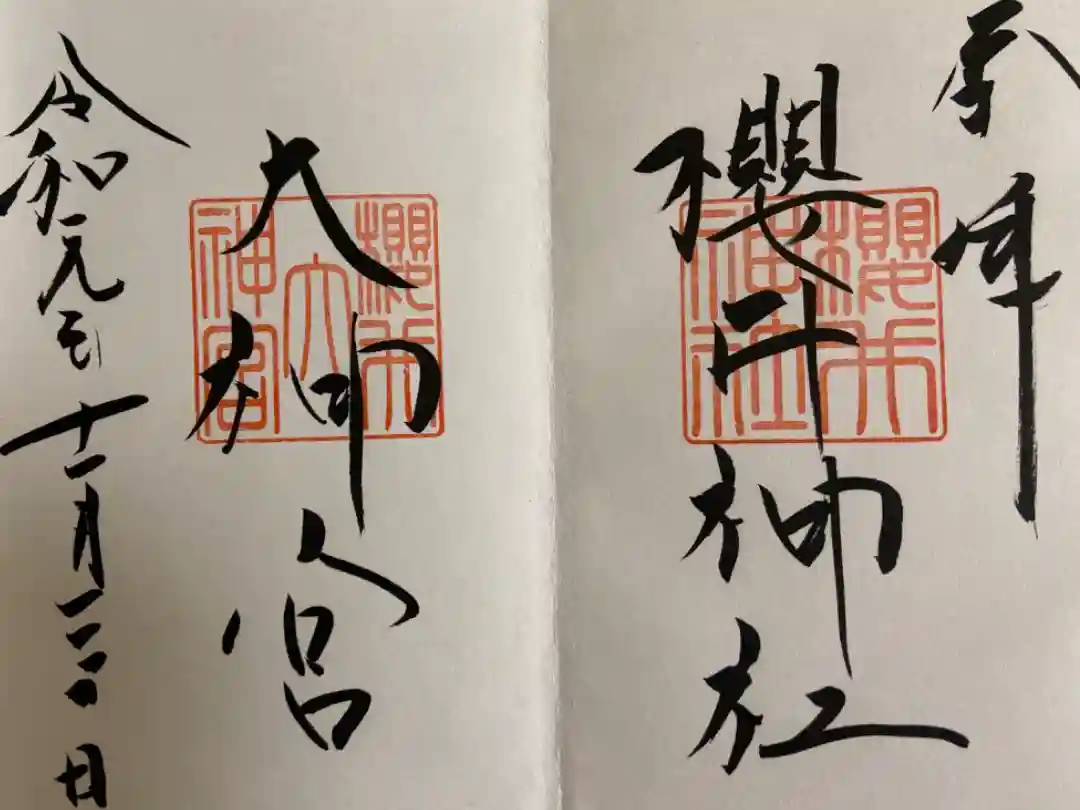 奉拝
櫻井神社
櫻井神社
大神宮
櫻井大神宮
令和元年十一月日